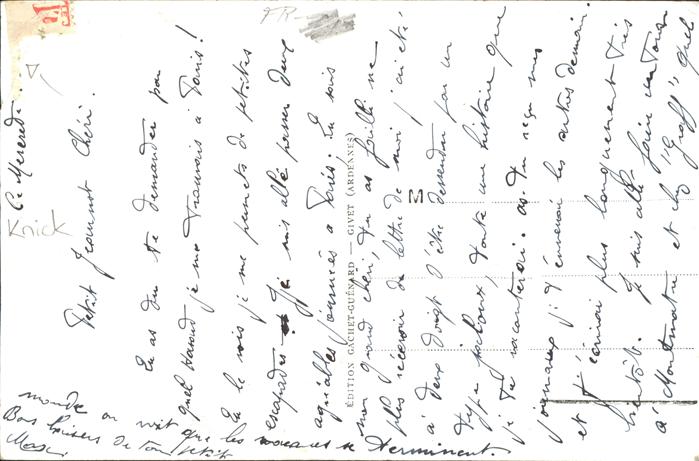 Ce Mercredi.
Petit Jeannot Chéri.
Tu as dû te demander par
quel Hasard je me trouvais à Paris!
Tu le vois je me permets de petites
escapades je suis allé passer deux
agréables journées à Paris. Tu sais
mon grand chéri, tu as failli ne
plus recevoir de lettre de moi, j'ai été
à deux doigt d'être descendu par un
type jaloux, toute une histoire que
je te raconterai. as-tu reçu mes
journaux je t'enverrai les autres demain.
et t'écrirai plus longuement très
bientôt. Je suis allé faire un tour
à Montmartre et chez "Graff", quel
monde on voit que les vacances se terminent.
Bons baisers de ton petit
Max
ÉDITION GACHET-GUÉNARD — GIVET (ARDENNES)
M
FR
Knick